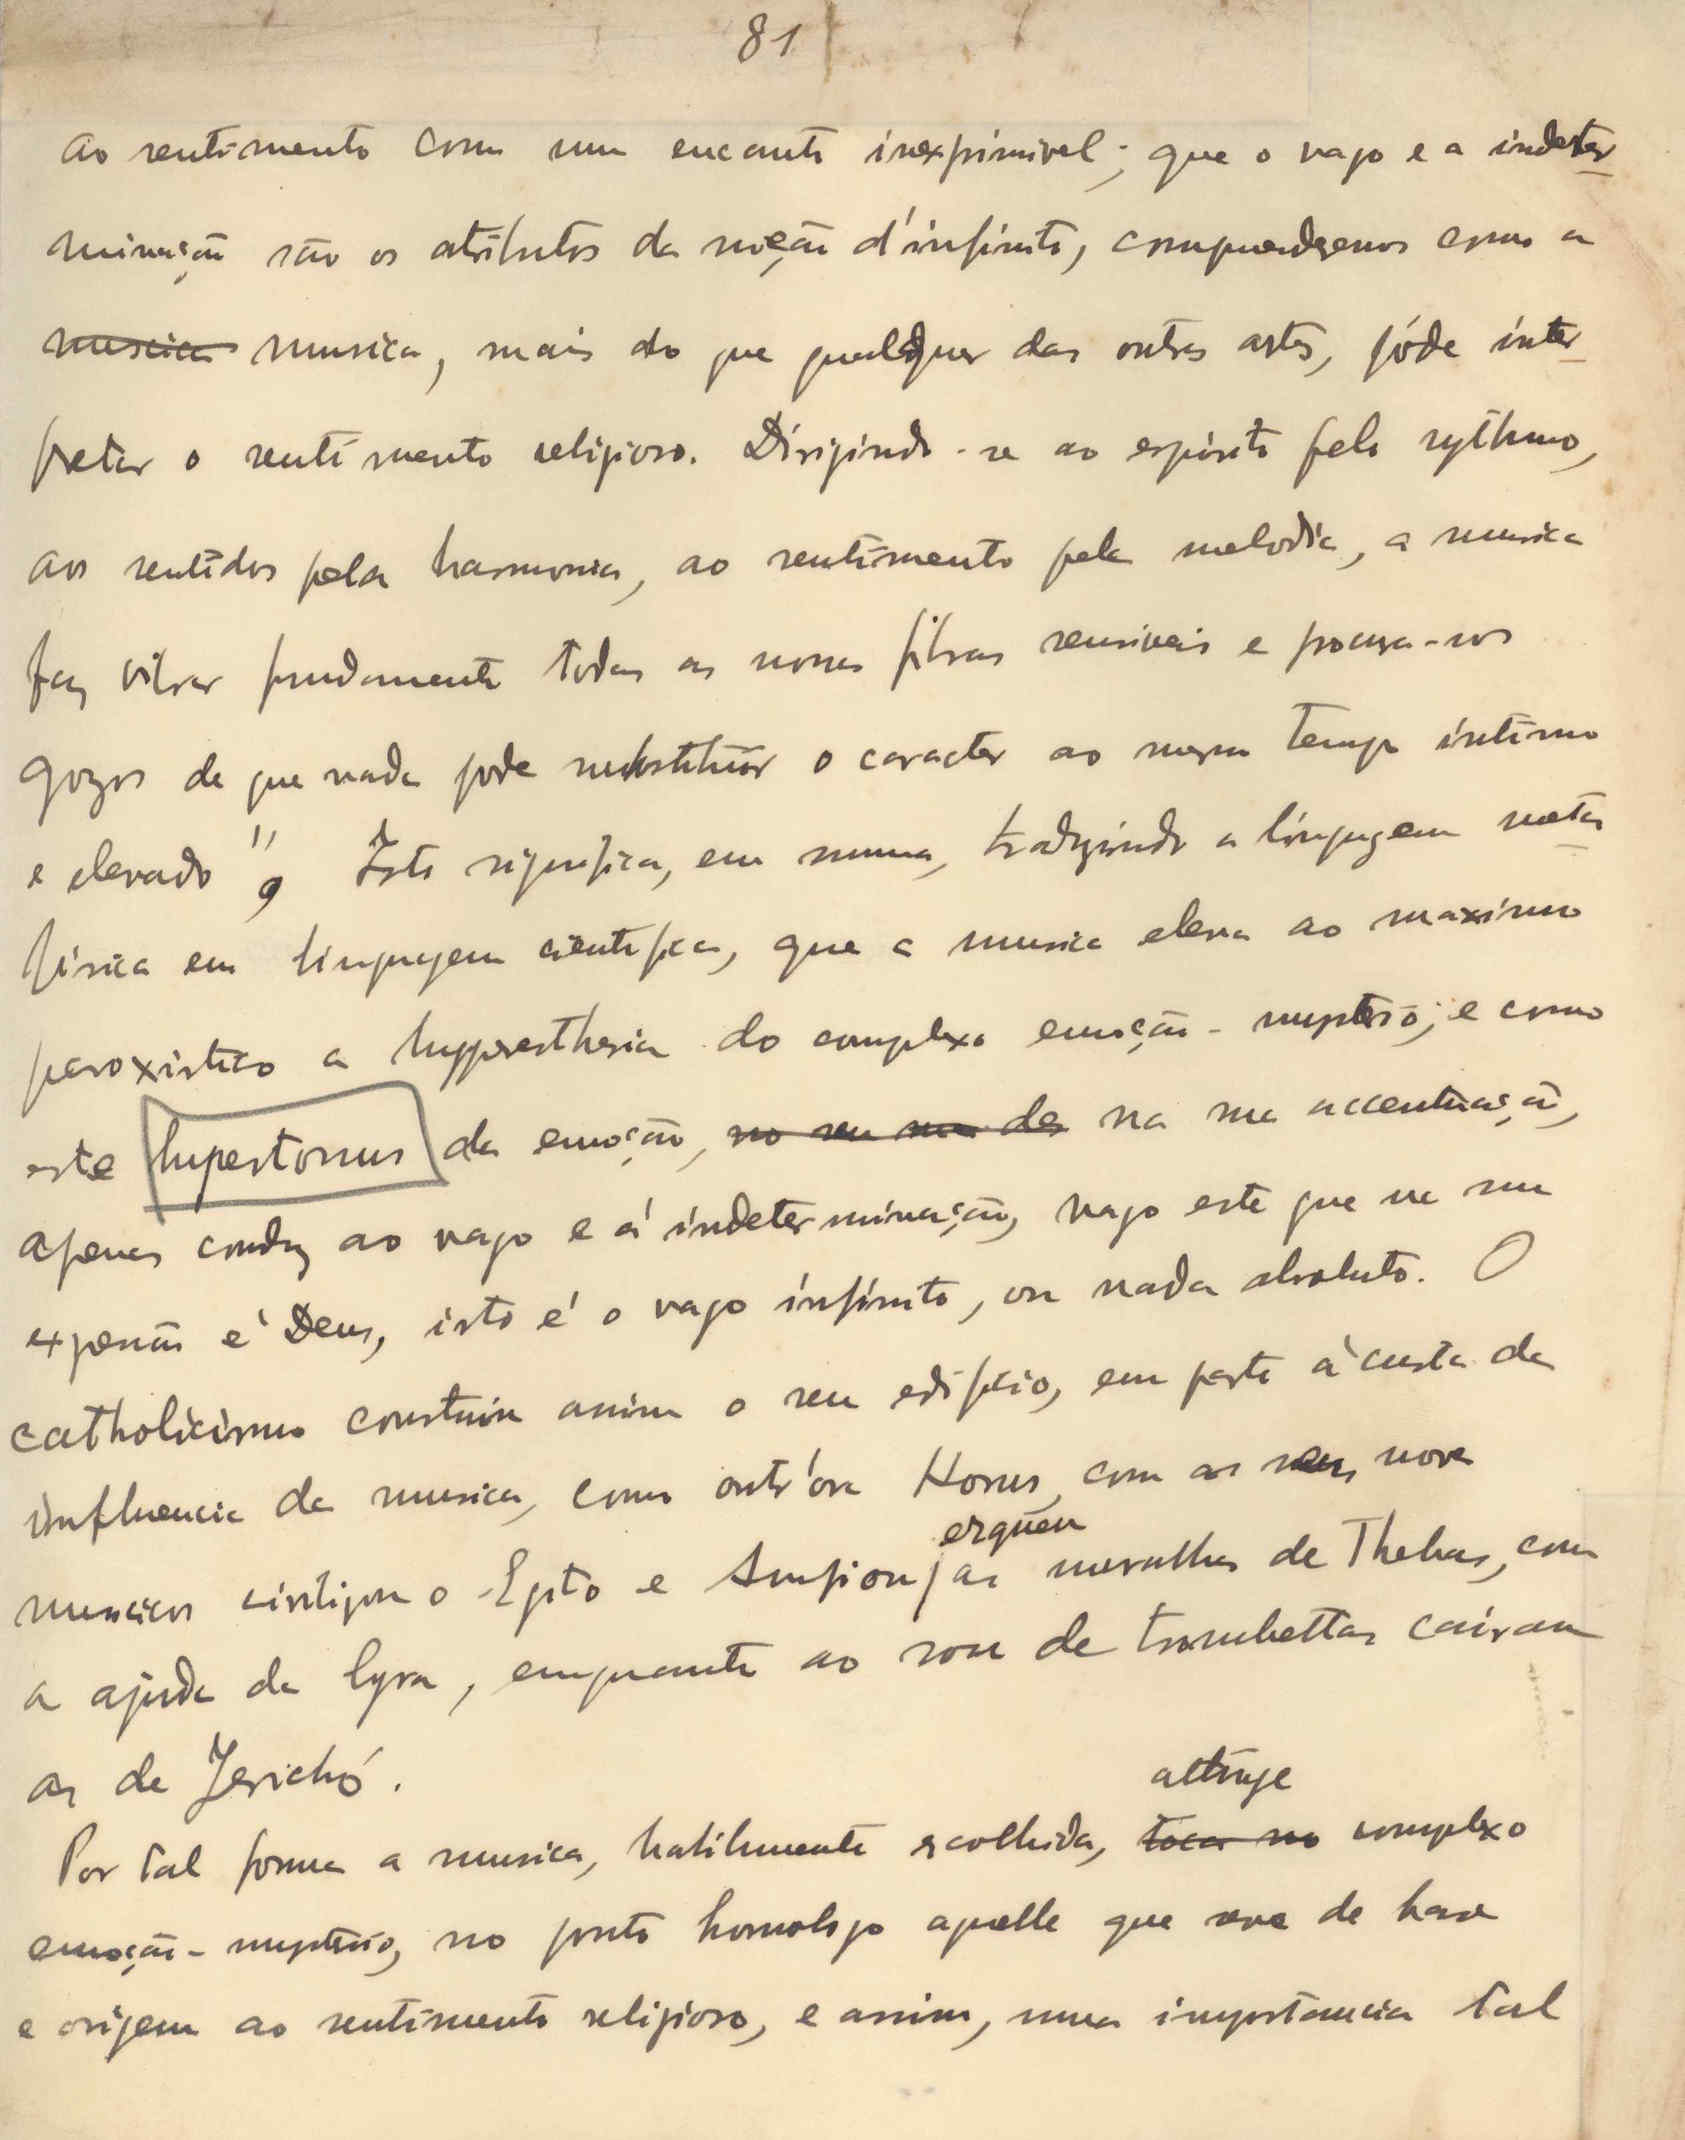 81
ao sentimento com um encanto inexprimivel; que o vago e a indeter
minação são os atributos da noção d'infinito, comprendemos como a
musica musica, mais do que qualquer das outras artes, póde inter
pretar o sentimento religioso. Dirigindo-se ao espirito pelo rythmo,
aos sentidos pela harmonia, ao sentimento pela melodia, a musica
faz vibrar fundamente todas as nossas fibras sensiveis e procura-nos
gozos de que nada pode substituir o caracter ao mesmo tempo intimo
e elevado", Isto significa, em summa, traduzindo a linguagem meta
fisica em linguagem cientifica, que a musica eleva ao maximo
paroxistico a hyperesthesia do complexo emoção-mysterio; e como
este hipertonus da emoção, no seu na sua accentuação,
apenas conduz ao vago e á indeterminação, vago este que na sua
expansão é Deus, isto é o vago infinito, ou nada absoluto. O
catholicismo construiu assim o seu edificio, em parte á custa da
influencia da musica, como outr'ora Horus, com as suas nove
musicas civilizou o Egito e Amfion erigueu as muralhas de Thebas, com
a ajuda da lyra, emquanto ao som de trombettas cairam
as de Jerichó.
Por tal forma a musica, habilmente escolhida, toca no attinge complexo
emoção-mysterio, no ponto homologo aquelle que serve de base
e origem ao sentimento religioso, e assim, numa importancia tal